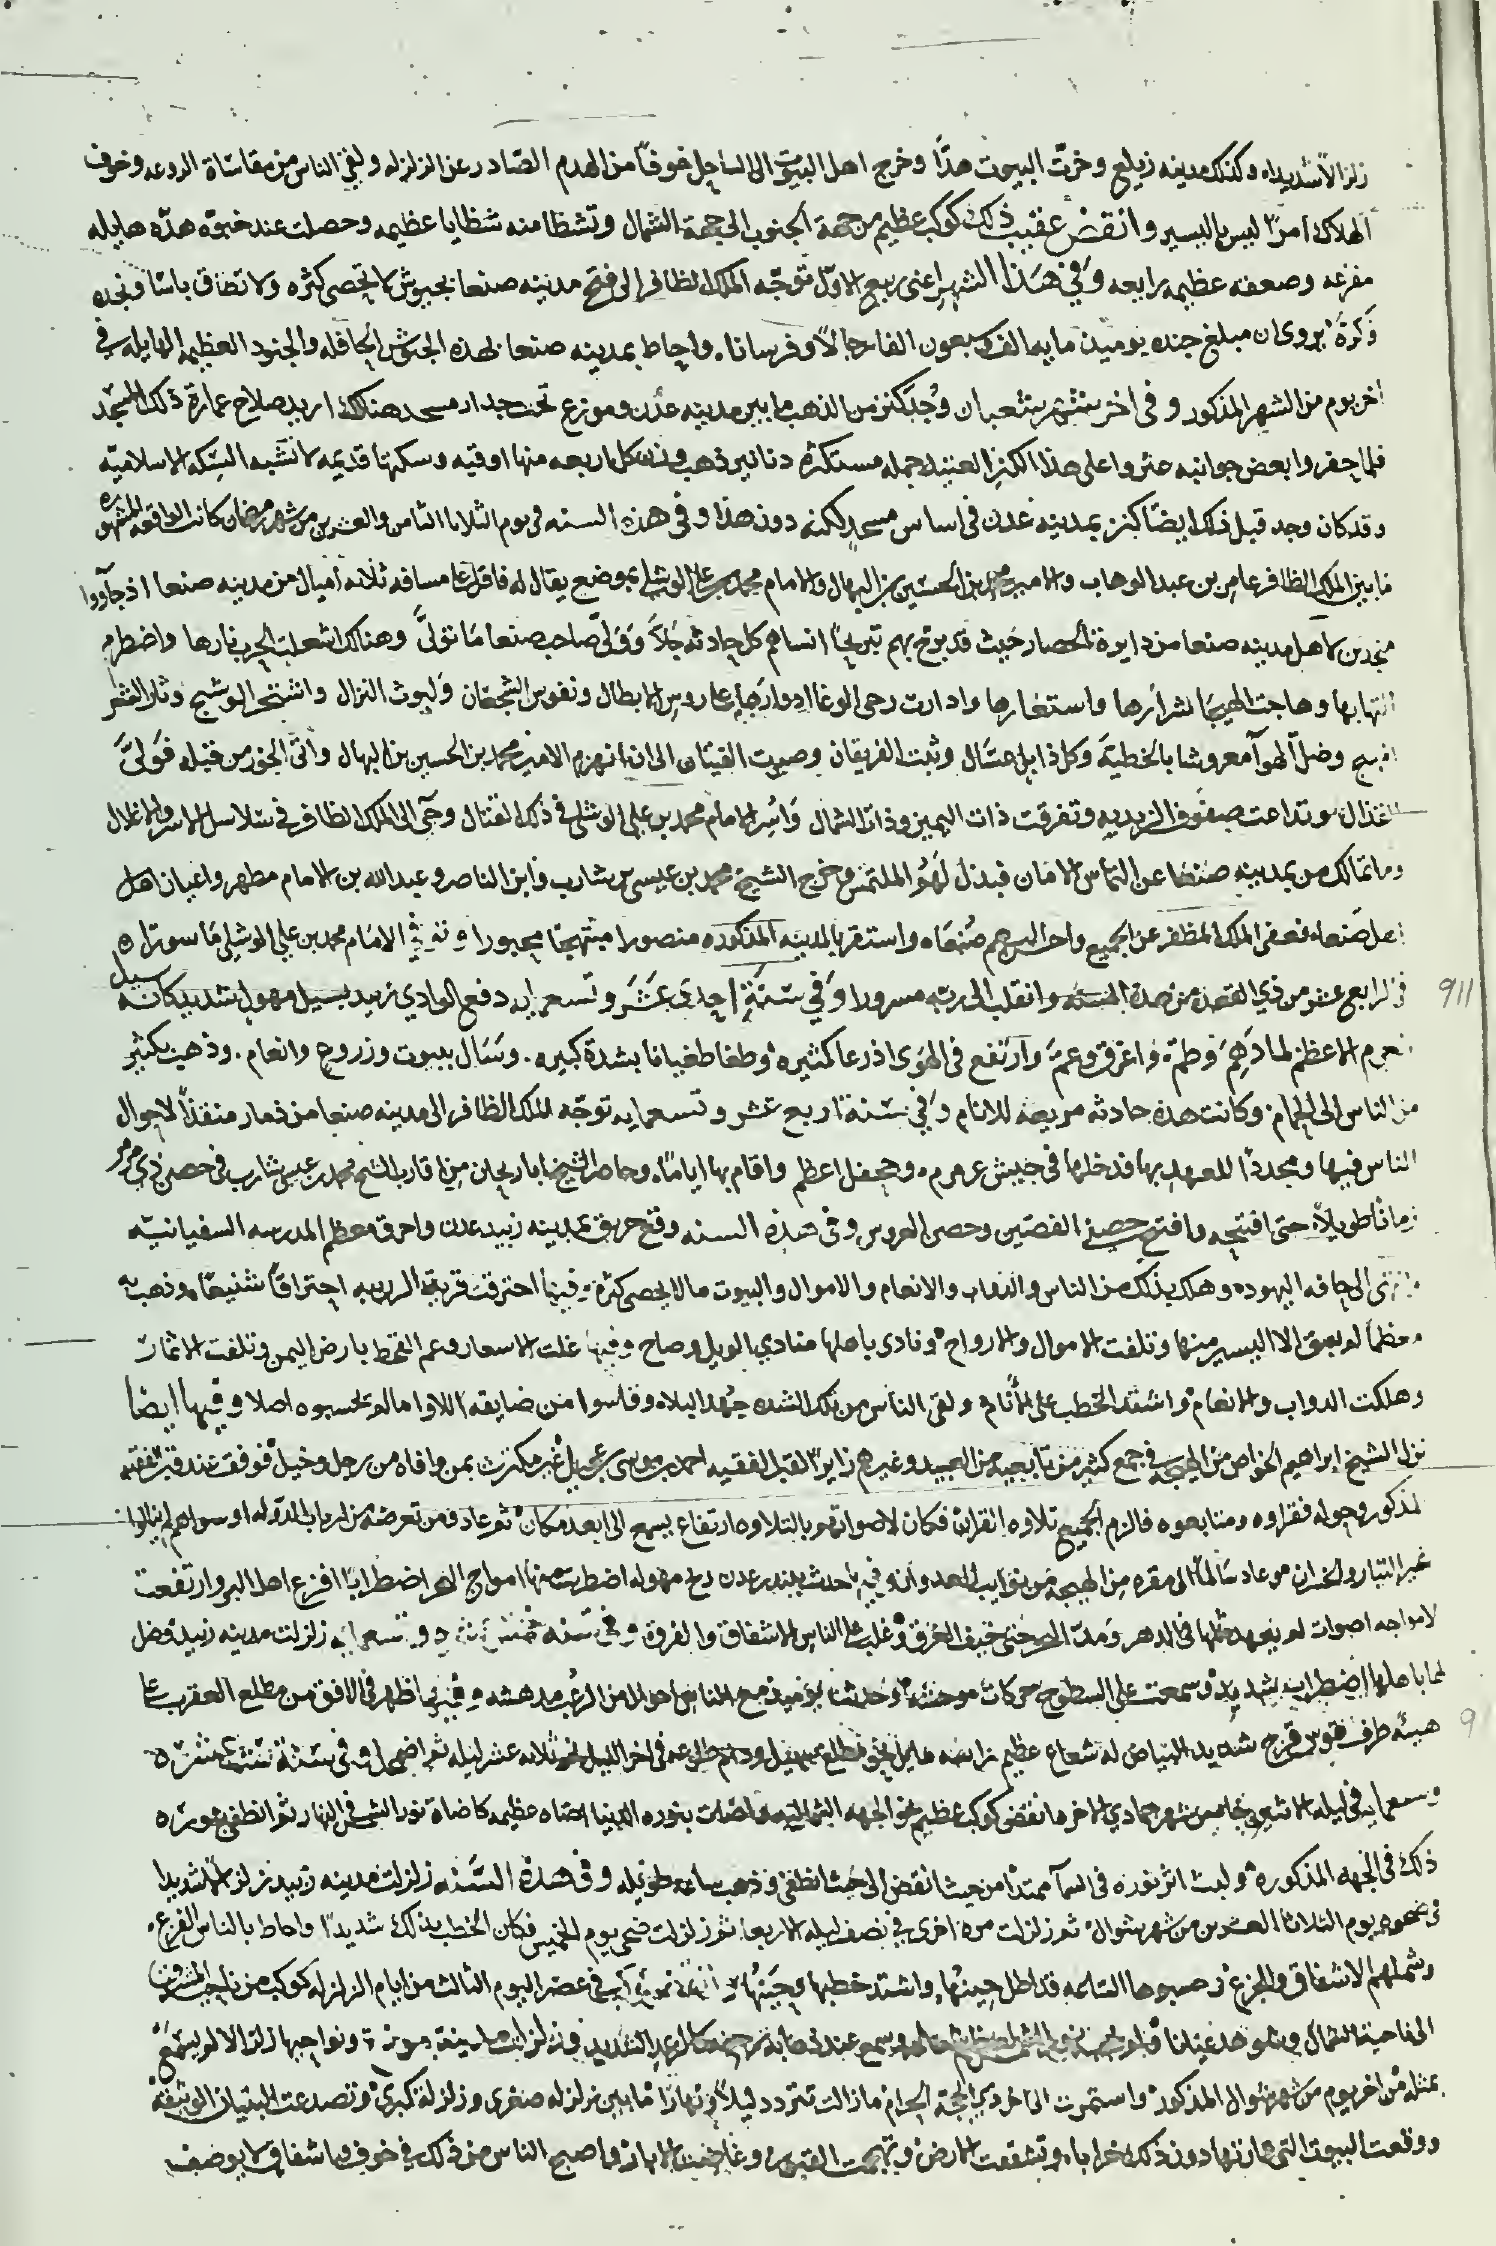 زلزالا شديدا وكذلك مدينه زيلع وخرت البيوت هدا وخرج اهل البيوت الى الساحل خوفا من الهدم الصادر عن الزلزله ولقي الناس من مقاساة الروعه وخوف
الهلاك امرا ليس باليسير وانقض عقيب ذلك كوكب عظيم من جهة الجنوب الى جهة الشمال وتشظا منه شظايا عظيمه وحصلت عند خبوه هده هايله
مفزعه وصعقه عظيمه رايعه وفي هذا الشهر اعني ربيع الاول توجه الملك الظافر الى فتح مدينه صنعا بجيوش لا تحصى كثره ولا تطاق باسا ونجده
وكرة يروى ان مبلغ جنده يوميذ مايه الف وسبعون الفا رجالا وفرسانا واحاط بمدينه صنعا بهذه الجيوش الحافله والجنود العظيمه الهايله في
اخر يوم من الشهر المذكور وفي اخر شهر شعبان وجد كنز من الذهب ما بين مدينه عدن وموزع تحت جدار مسجد هنالك اريد صلاح عمارة ذلك المسجد
فلما حفروا بعض جوانبه عثروا على هذا الكنز العتيد جمله مستكثره دنانير ذهب وزن كل اربعه منها اوقيه وسكتها قديمه لا تشبه السكه الاسلاميه
وقد كان وجد قبل ذلك ايضا كنز بمدينه عدن في اساس مسجد لكنه دون هذا وفي هذه السنه في يوم الثلاثا الثامن والعشرين من شهر رمضان كانت الواقعه المشهوره
ما بين الملك الظافر عامر بن عبد الوهاب والامير محمد بن الحسين بن البهال والامام محمد بن علي الوشلي بموضع يقال له قاع مسافه ثلاثه اميال من مدينه صنعا اذ جآووا
منجدين لاهل مدينه صنعا من دايرة الحصار حيث قد برح بهم تبريحا انساهم كل حادثه جلا وولى صاحب صنعا ما تولى وهنالك اشعلت الحرب نارها واضطرم
التهابها وهاجت الهيجا شرارها واستعارها وادارت رحى الوغا ادوارها على روس الابطال ونفوس الشجعان وليوث النزال واشتجر الوشيج
وضل الهوآ معروشا بالخطيه وكل ذابل عسال وثبت الفريقان وصبرت الفيتان الى ان انهزم الامير محمد بن الحسين بن البهال واتى الخور من قبله فولى
وتداعت صفوف الزيديه وتفرقت ذات اليمين وذات الشمال واسر الامام محمد بن علي الوشلي في ذلك القتال وجي الى الملك الظافر في سلاسل الاسر والاغلال
وما تمالك من بمدينه صنعا عن التماس الامان فبذل لهو الملتمس وخرج الشيخ محمد بن عيسى بن شارب وابن الناصر وعبد الله بن الامام مطهر واعيان اهل
اهل صنعا فعفى الملك المظفر عن الجميع واستقر بالمدينه المذكوره منصورا مبتهجا محبورا الامام محمد بن علي الوشلي ماسورا
في الرابع عشر من ذي القعده من هذه السنه وانقلب الى ربه مسرورا وفي سنة احدى عشر وتسعمايه دفع الوادي زبيد بسيل مهول شديد كانه سيل
العرم الاعظم لما دهم وطم واغرق وعم وارتفع في الهوى اذرعا كثيره وطغا طغيانا بشدة كبيره وسال ببيوت وزروع وانعام وذهب بكثير
من الناس الى الحمام وكانت هذه حادثه مريعه للانام وفي سنة اربع عشر وتسعمايه توجه الملك الظافر الى مدينه صنعا من ذمار متفقدا لاحوال
الناس فيها ومجددا للعهد بها فدخلها في جيش عرمرم وجحفل اعظم واقام بها اياما وحاصر الشيخ ابا ريحان من اقارب الشيخ محمد بن عيسى شارب في حصن ذي مرمر
زمانا طويلا حتى افتتحه وافتتح حصن الفصين وحصن العروس وفي هذه السنه وقع حريق بمدينه زبيد عدن واحرق معظم المدرسه السفيانيه
وانتهى الى حافه اليهود وهلك بذلك من الناس والدواب والانعام والاموال والبيوت ما لا يحصى كثره وفيها احترقت قرية احتراقا شنيعا وذهب
معظمها لم يبق الا اليسير منها وتلفت الاموال والارواح ونادى باهلها منادي الويل وصاح وفيها غلت الاسعار وعم القحط بارض اليمن وتلفت الاثمار
وهلكت الدواب والانعام واشتد الخطب على الانام ولقي الناس من تلك الشده جهد البلاء وقاسوا من ضايقه اللاوا ما لم يحسبوه اصلا وفيها ايضا
نزل الشيخ ابراهيم الخواص من الهيجه في جمع كثير من تابعيه من العبيد وغيرهم زايرا لقبر الفقيه احمد بن موسى عجيل غير مكترث بمن وافاه من رجل وخيل فوقف عند قبر الفقيه
المذكور وحوله فقراوه ومتابعوه فالزم الجميع تلاوه القران فكان لاصواتهم بالتلاوه ارتفاع يسمع الى ابعد مكان ثم عاد فمن تعرضه من ارباب الدوله او سواهم لم ينالوا
غير التبار والخسران وعاد سالما الى مقره من الهيجه وفيها حدث ببندر عدن ريح مهوله اضطربت منها امواج البحر اضطرابا افزع اهل البر وارتفعت
لامواجه اصوات لم يعهد مثلها في الدهر ومد البحر حتى خيف الغرق وغلب على الناس الاشفاق والفرق وفي سنه خمس عشر وتسعمايه زلزلت مدينه زبيد وحصل
لها باهلها اضطراب شديد وسمعت على السطوح حركات موحشه وحدث يوميذ مع الناس احوال من الرعب مدهشه وفيها ظهر في الافق من مطلع العقرب على
هيئه طرف قوس قزح شديد البياض له شعاع عظيم مايل نحو مطلع سهيل ودام طلوعه في اخر الليل نحو ثلاثه عشر ليله ثم اضمحل وفي سنة ست عشره
وتسعمايه في ليله خامس شهر جمادي الاخره انقض كوكب عظيم نحو الجهه الشماليه واضات بنوره الدنيا اضاه عظيمه كاضاة نور الشمس في النهار ثم انطفى
ذلك في الجهه المذكوره ولبث اثر نوره في السمآ ممتدا من حيث انقض الى حيث انطفى وذهب ساعه طويله وفي هذه السنه زلزلت مدينه زبيد زلزالا شديدا
في ضحوه يوم الثلاثا العشرين من شهر شوال ثم زلزلت مره اخرى في نصف ليله الاربعا ثم زلزلت ضحى يوم الخميس فكان الخطب بذلك شديدا واحاط بالناس الفزع
وشملهم الاشفاق والجزع وحسبوها القيامه قد اظل حينها واشتد خطبها في عصر اليوم الثالث من ايام الزلزله كوكب من ناحيه المشرق
الى ناحية الشمال وشوهد عيانا وسمع عند وزلزلت مدينة موزع ونواحيها زلزالا لم يسمع
بمثله من اخر يوم من شهر شوال المذكور واستمرت الى اخر ذي الحجة الحرام ما زالت تتردد ليلا ونهارا ما بين زلزله صغرى وزلزله كبرى وتصدعت البنيان الوثيقه
ووقعت البيوت التي عمارتها دون ذلك خرابا وتشققت الارض وتهدمت القبور وغاضت الابار واصبح الناس من ذلك في خوف واشفاق لا يوصف
911
9